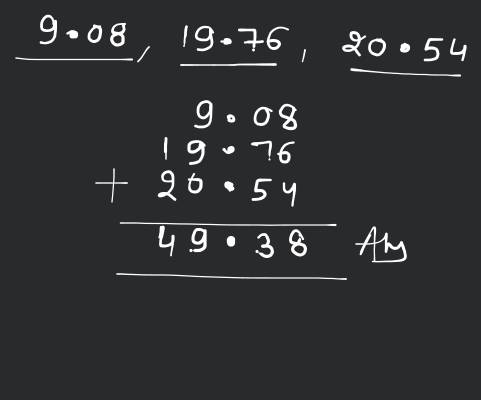 9.08, 19.76, 20.54
9.08
19.76
+ 20.54
49.38 Ans